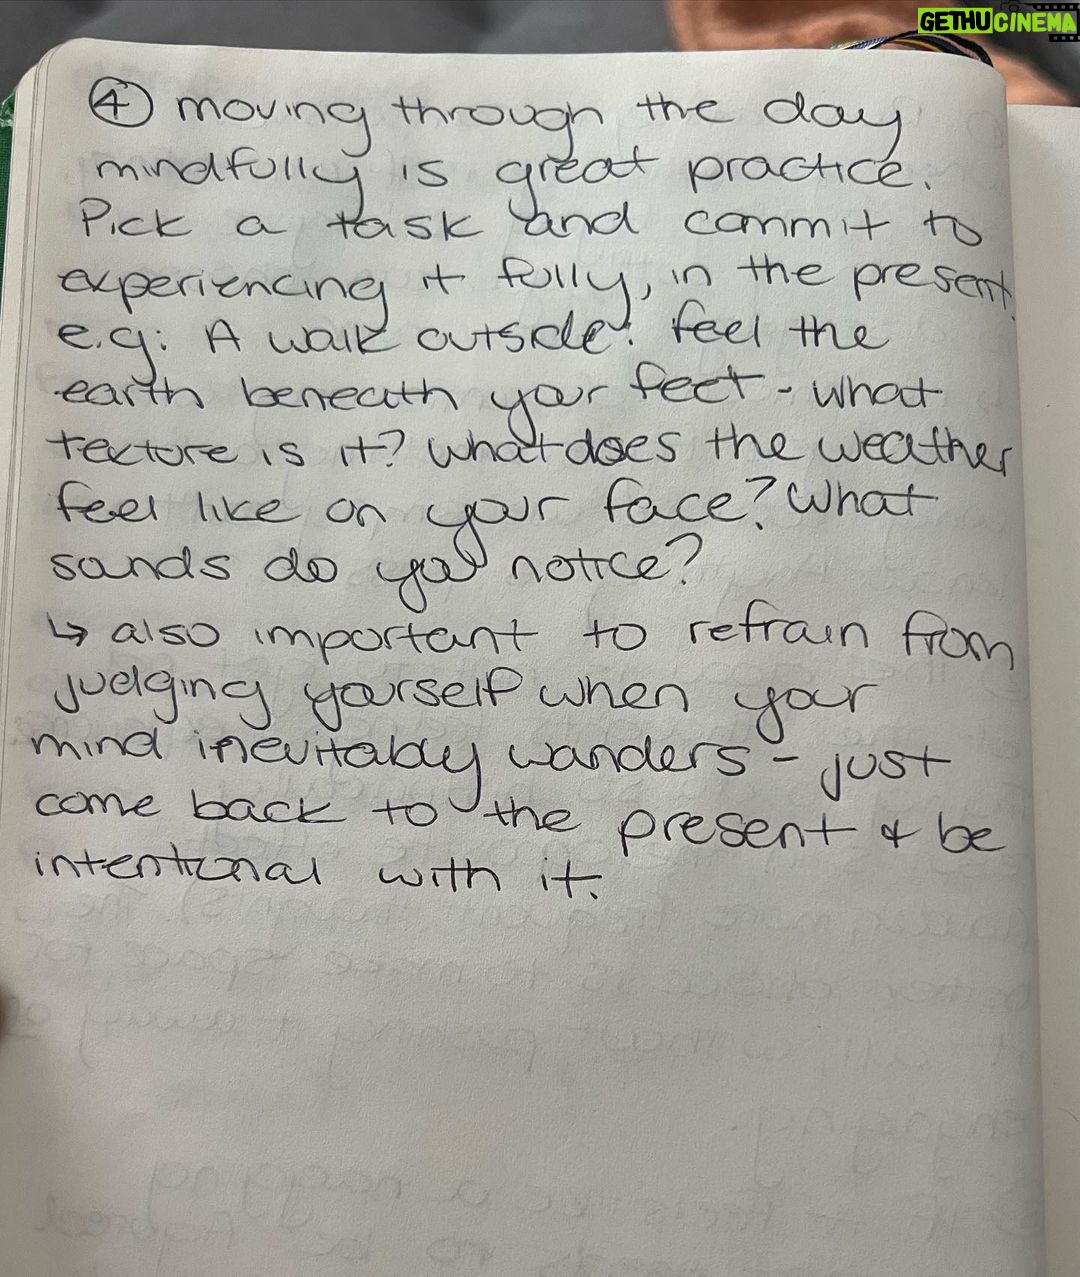 GETHUCINEMA
④ moving through the day
mindfully is great practice.
Pick a task and commit to
experiencing it fully, in the present.
e.g: A walk outside: feel the
earth beneath your feet - what
texture is it? What does the weather
feel like on your face? What
sounds do you notice?
↳ also important to refrain from
judging yourself when your
mind inevitably wanders - just
come back to the present & be
intentional with it.